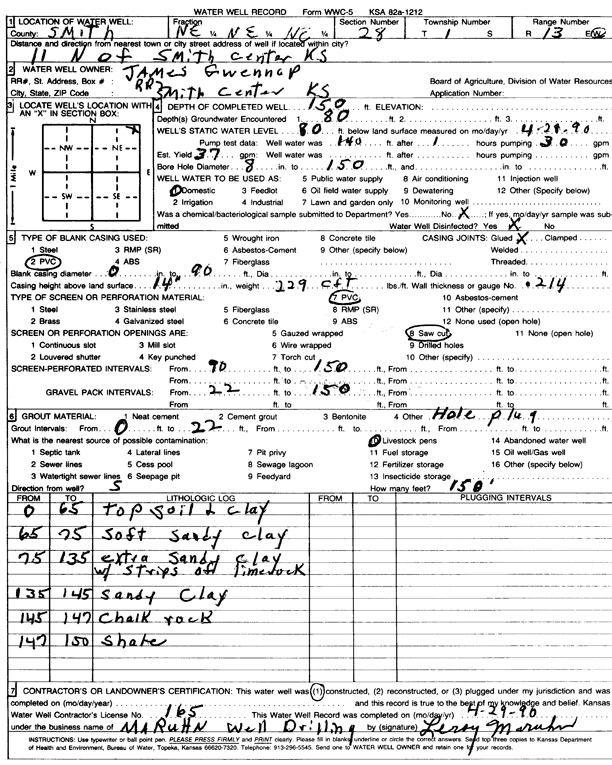 WATER WELL RECORD Form WWC-5 KSA 82a-1212
1 LOCATION OF WATER WELL: Fraction Section Number Township Number Range Number
County: Smith NE ¼ NE ¼ NE ¼ 28 T 1 S R 13 E/W
Distance and direction from nearest town or city street address of well if located within city?
11 N of Smith Center KS
2 WATER WELL OWNER: James Gwennap
RR#, St. Address, Box # : RR Board of Agriculture, Division of Water Resources
City, State, ZIP Code : Smith Center KS Application Number:
3 LOCATE WELL'S LOCATION WITH AN "X" IN SECTION BOX:
N
NW NE
W E
SW SE
S
1 Mile
4 DEPTH OF COMPLETED WELL 150 ft. ELEVATION:
Depth(s) Groundwater Encountered 1 80 ft. 2. ft. 3. ft.
WELL'S STATIC WATER LEVEL 80 ft. below land surface measured on mo/day/yr 4-28-90
Pump test data: Well water was 140 ft. after 1 hours pumping 30 gpm
Est. Yield 37 gpm: Well water was ft. after hours pumping gpm
Bore Hole Diameter 8 in. to 150 ft., and in. to ft.
WELL WATER TO BE USED AS: 5 Public water supply 8 Air conditioning 11 Injection well
1 Domestic 3 Feedlot 6 Oil field water supply 9 Dewatering 12 Other (Specify below)
2 Irrigation 4 Industrial 7 Lawn and garden only 10 Monitoring well
Was a chemical/bacteriological sample submitted to Department? Yes No X ; If yes, mo/day/yr sample was submitted Water Well Disinfected? Yes X No
5 TYPE OF BLANK CASING USED: 5 Wrought iron 8 Concrete tile CASING JOINTS: Glued X Clamped
1 Steel 3 RMP (SR) 6 Asbestos-Cement 9 Other (specify below) Welded
2 PVC 4 ABS 7 Fiberglass Threaded
Blank casing diameter 0 in. to 90 ft., Dia in. to ft., Dia in. to ft.
Casing height above land surface 14" in., weight 229 cft lbs./ft. Wall thickness or gauge No. .214
TYPE OF SCREEN OR PERFORATION MATERIAL: 7 PVC 10 Asbestos-cement
1 Steel 3 Stainless steel 5 Fiberglass 8 RMP (SR) 11 Other (specify)
2 Brass 4 Galvanized steel 6 Concrete tile 9 ABS 12 None used (open hole)
SCREEN OR PERFORATION OPENINGS ARE: 5 Gauzed wrapped 8 Saw cut 11 None (open hole)
1 Continuous slot 3 Mill slot 6 Wire wrapped 9 Drilled holes
2 Louvered shutter 4 Key punched 7 Torch cut 10 Other (specify)
SCREEN-PERFORATED INTERVALS: From 90 ft. to 150 ft., From ft. to ft.
From ft. to ft., From ft. to ft.
GRAVEL PACK INTERVALS: From 22 ft. to 150 ft., From ft. to ft.
From ft. to ft., From ft. to ft.
6 GROUT MATERIAL: 1 Neat cement 2 Cement grout 3 Bentonite 4 Other Hole plug
Grout Intervals: From 0 ft. to 22 ft., From ft. to ft., From ft. to ft.
What is the nearest source of possible contamination: 10 Livestock pens 14 Abandoned water well
1 Septic tank 4 Lateral lines 7 Pit privy 11 Fuel storage 15 Oil well/Gas well
2 Sewer lines 5 Cess pool 8 Sewage lagoon 12 Fertilizer storage 16 Other (specify below)
3 Watertight sewer lines 6 Seepage pit 9 Feedyard 13 Insecticide storage
Direction from well? S How many feet? 150'
FROM TO LITHOLOGIC LOG FROM TO PLUGGING INTERVALS
0 65 top soil & clay
65 75 soft sandy clay
75 135 extra sandy clay
w/ strips off limerock
135 145 sandy clay
145 147 Chalk rock
147 150 Shale
7 CONTRACTOR'S OR LANDOWNER'S CERTIFICATION: This water well was (1) constructed, (2) reconstructed, or (3) plugged under my jurisdiction and was
completed on (mo/day/year) and this record is true to the best of my knowledge and belief. Kansas
Water Well Contractor's License No. 165 This Water Well Record was completed on (mo/day/yr) 4-29-90
under the business name of MARUHN Well Drilling by (signature) Leroy Maruhn
INSTRUCTIONS: Use typewriter or ball point pen. PLEASE PRESS FIRMLY and PRINT clearly. Please fill in blanks, underline or circle the correct answers. Send top three copies to Kansas Department
of Health and Environment, Bureau of Water, Topeka, Kansas 66620-7320. Telephone: 913-296-5545. Send one to WATER WELL OWNER and retain one for your records.